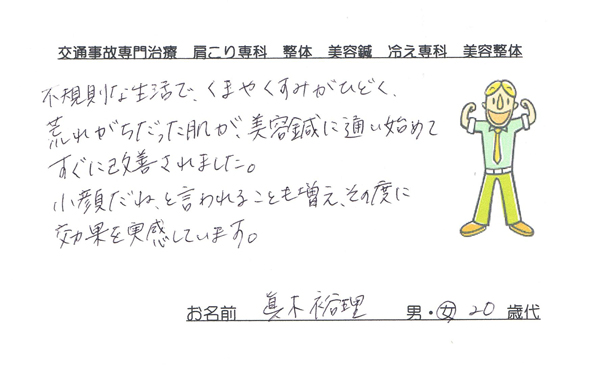 交通事故専門治療　肩こり専科　整体　美容鍼　冷え専科　美容整体
不規則な生活で、くまやくすみがひどく、
荒れがちだった肌が、美容鍼に通い始めて
すぐに改善されました。
小顔だね、と言われることも増え、その度に
効果を実感しています。
お名前　真木裕理　男・女 20 歳代